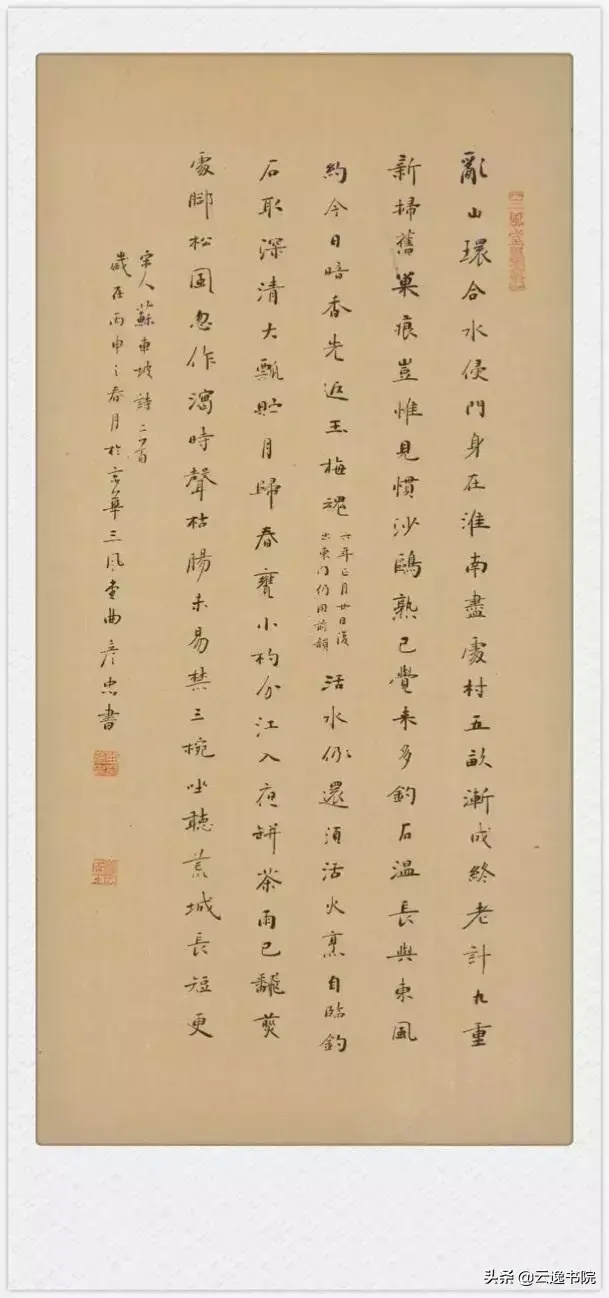 亂山環合水侵門身在淮南盡處村五畝漸成終老計九重
新掃舊巢痕豈惟見慣沙鷗熟已覺來多釣石溫長與東風
約今日暗香先返玉梅魂
六年正月廿日復
出東門仍用前韻
活水仍還須活火烹自臨釣
石取深清大瓢貯月歸春甕小杓分江入夜缾茶雨已翻煎
處脚松風忽作瀉時聲枯腸未易禁三椀坐聽荒城長短更
宋人蘇東坡詩二首
歲在丙申之春月於京華三風堂曲彥忠書
头条 @云逸书院